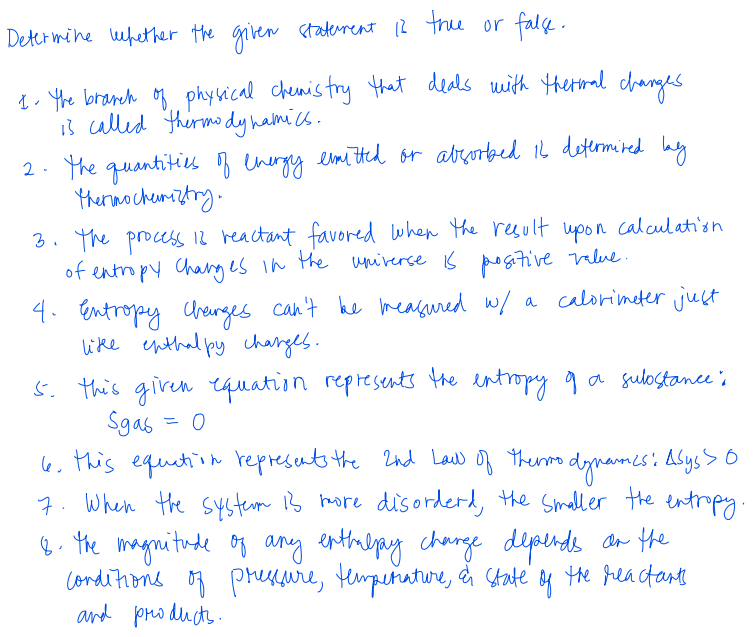 Determine whether the given statement is true or false.
1. The branch of physical chemistry that deals with thermal changes
is called thermodynamics.
2. The quantities of energy emitted or absorbed is determined by
thermochemistry.
3. The process is reactant favored when the result upon calculation
of entropy changes in the universe is positive value.
4. Entropy changes can't be measured w/ a calorimeter just
like enthalpy changes.
5. This given equation represents the entropy of a substance:
Sgas = 0
6. This equation represents the 2nd Law of Thermodynamics: ΔSys > 0
7. When the system is more disorderd, the smaller the entropy.
8. The magnitude of any enthalpy change depends on the
conditions of pressure, temperature, & state of the reactants
and products.